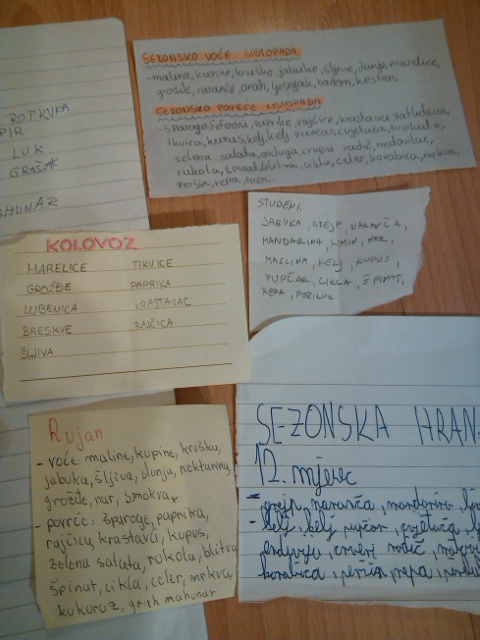 ROTKVA
PIR
LUK
GRAŠAK
SEZONSKO VOĆE LISTOPADA
-malina, kupine, kruške, jabuke, šljive, dunje, marelice,
grožđe, naranče, orah, lješnjak, badem, kesten.
SEZONSKO POVRĆE LISTOPADA
-šparoga, paprike, rajčice, krastavce, patlidžan,
tikvica, kukuruz, kelj, kelj pupčar, cvjetača,
zelena salata, endivija, crveni radič, matovilac,
rukola, špinat, blitva, cikla, celer, korabica, mrkva,
peršin, repa, hren.
STUDENI.
JABUKA, GREJP, NARANČA,
MANDARINA, LIMUN, NAR,
MASLINA, KELJ, KUPUS,
PUPČAR, CIKLA, ŠPINAT,
REPA, PORILUK
KOLOVOZ
MARELICE TIKVICE
GROŽĐE PAPRIKA
LUBENICA KRASTAVAC
BRESKVE RAJČICA
ŠLJIVA
Rujan
- voće: maline, kupine, kruška,
jabuka, šljiva, dunja, nektarina,
grožđe, nar, smokva
- povrće: šparoge, paprika,
rajčica, krastavci, kupus,
zelena salata, rukola, blitva
špinat, cikla, celer, mrkva,
kukuruz, grah mahunar
SEZONSKA HRAN
12. mjesec
- grejp, naranča, mandarina,
- kelj, kelj pupčar, cvjetača,
endivija, crveni radič,
korabica, peršin, repa,